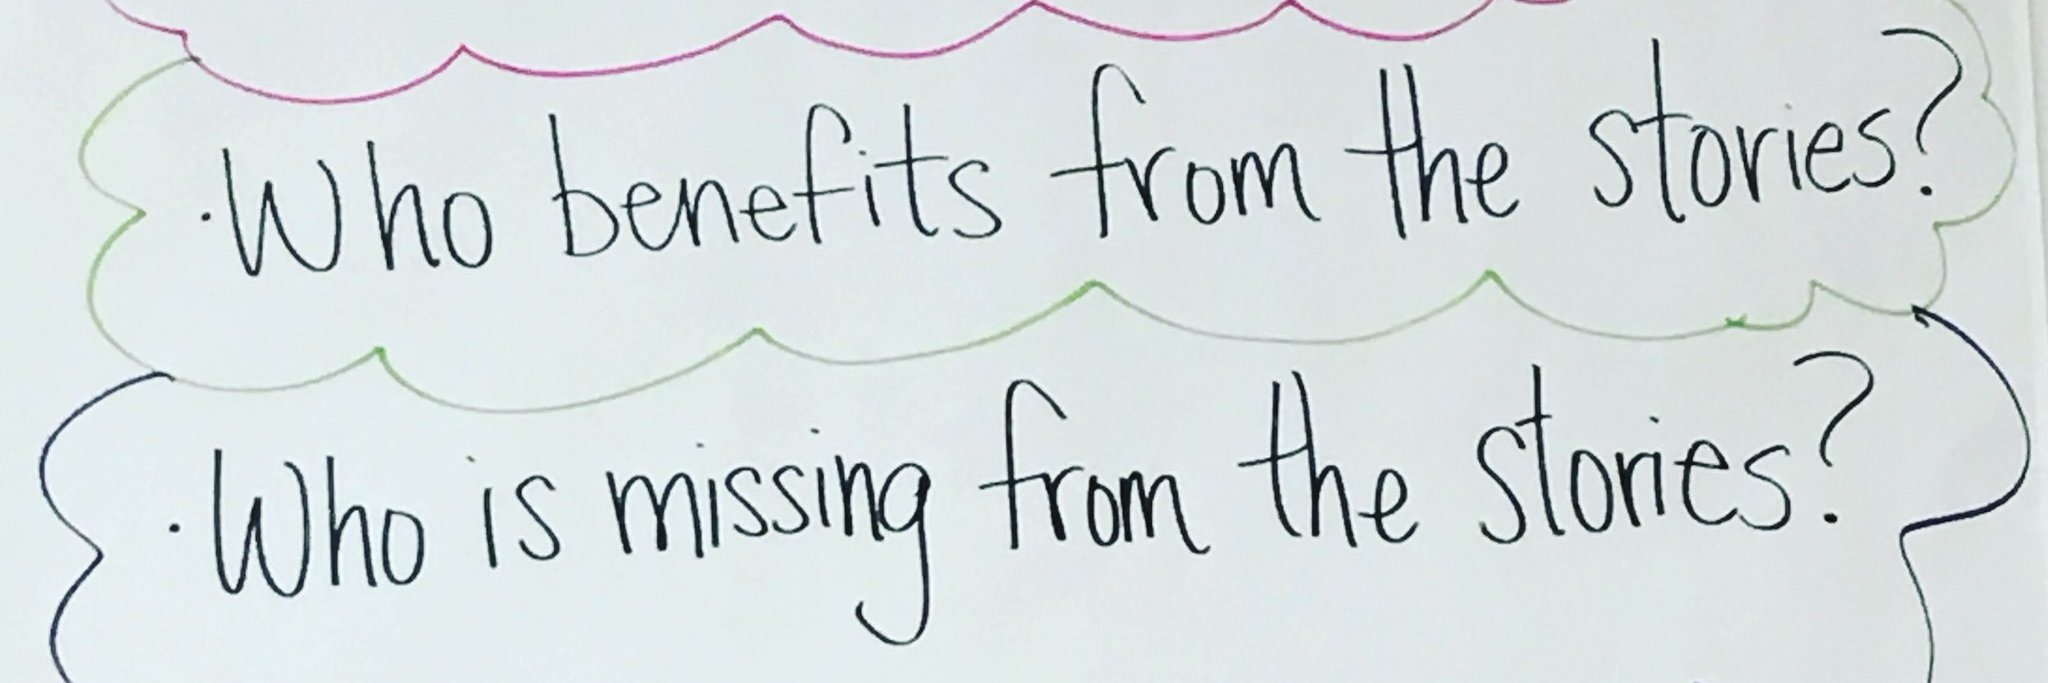 ·Who benefits from the stories?
·Who is missing from the stories?